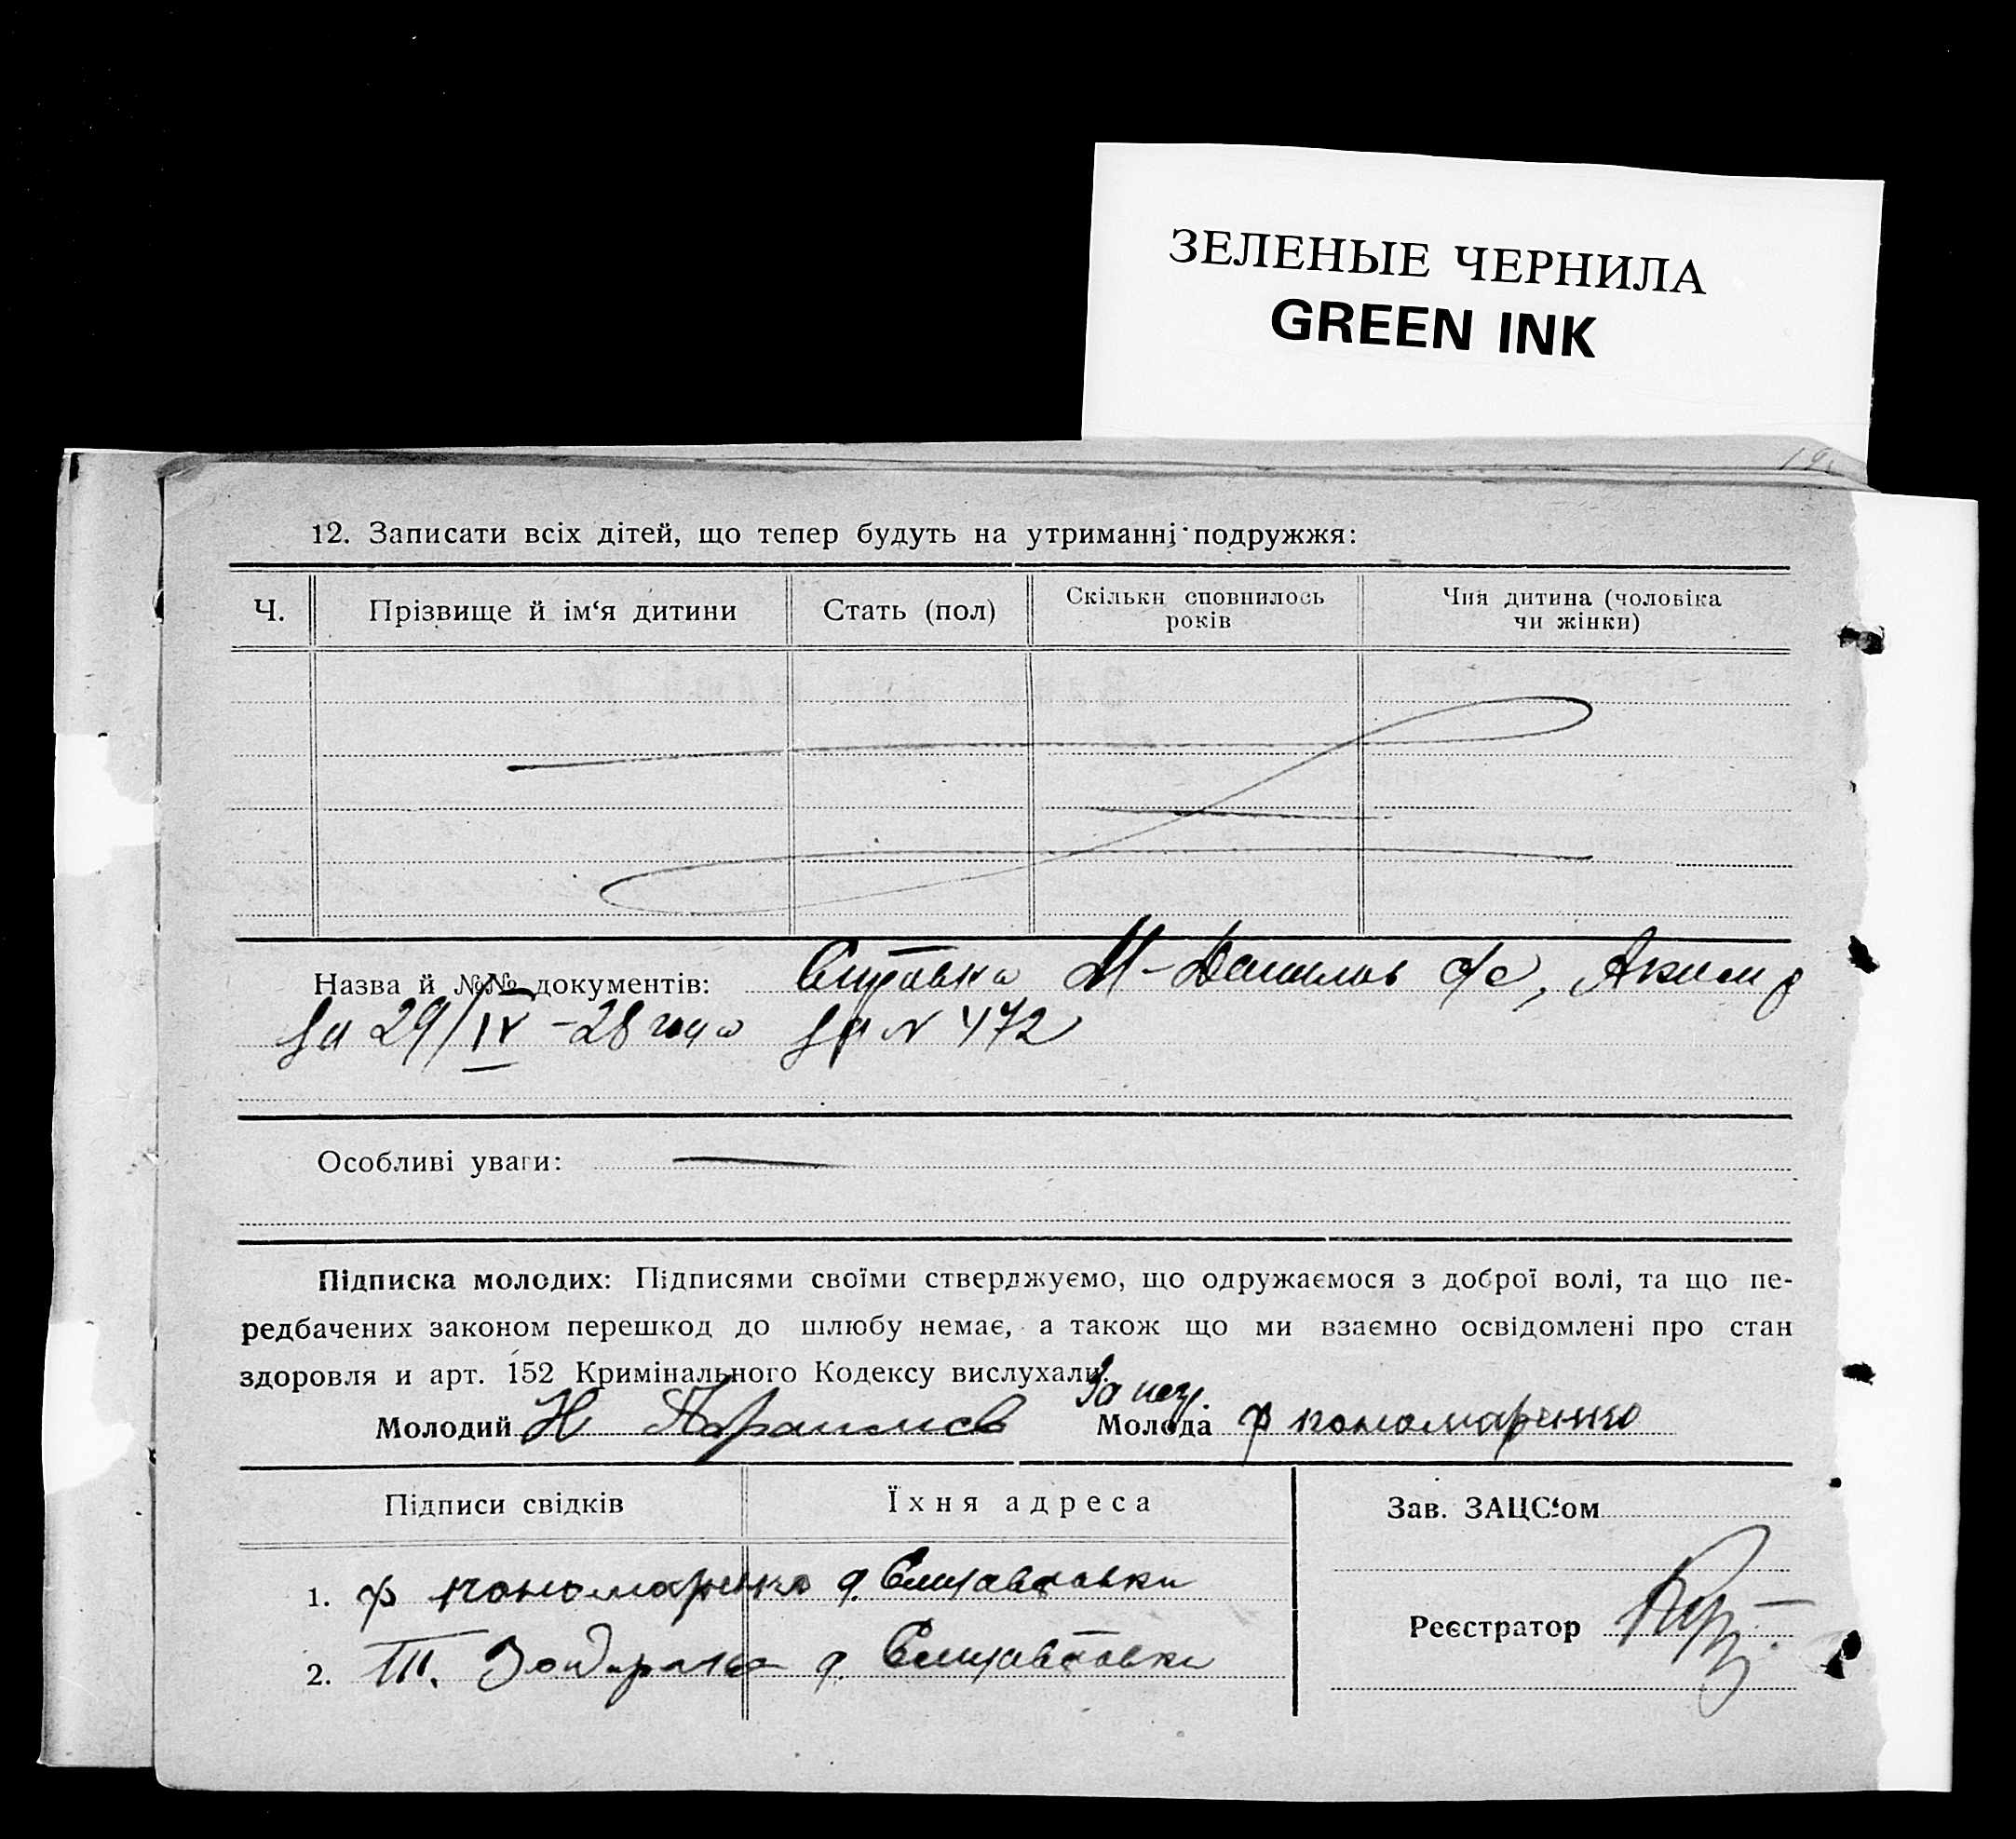 ЗЕЛЕНЫЕ ЧЕРНИЛА
GREEN INK
12. Записати всіх дітей, що тепер будуть на утриманні подружжя:
Ч. Прізвище й ім‘я дитини Стать (пол) Скільки сповнилось років Чия дитина (чоловіка чи жінки)
Назва й №№ документів: Справка М-Данилов с/с, Аким р
За 29/IV -28 года за N 472
Особливі уваги: —
Підписка молодих: Підписями своїми стверджуємо, що одружаємося з доброї волі, та що пе-
редбачених законом перешкод до шлюбу немає, а також що ми взаємно освідомлені про стан
здоровля и арт. 152 Кримінального Кодексу вислухали.
За нег.
Молодий Н Молода ф пономаренко
Підписи свідків Їхня адреса Зав. ЗАЦС‘ом
1. ф пономаренко д. Елизаветовки
Реєстратор
2. Т. д. Елизаветовки